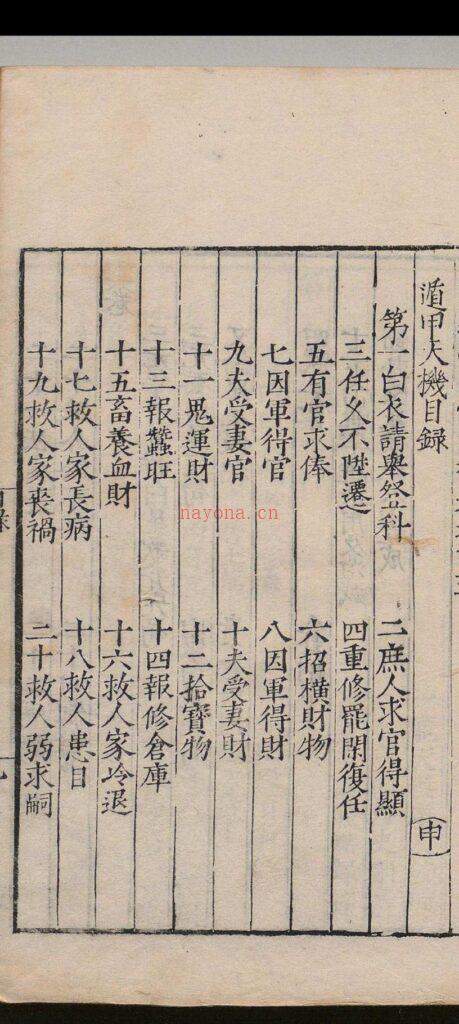 遁甲天機目録
申
第一白衣請舉登科
二庶人求官得顯
三任久不陞遷
四重修罷閑復任
五有官求俸
六招橫財物
七因軍得官
八因軍得財
九夫受妻官
十夫受妻財
十一鬼運財
十二拾寶物
十三報蠶旺
十四報修倉庫
十五畜養血財
十六救人家冷退
十七救人家長病
十八救人患目
十九救人家喪禍
二十救人弱求嗣
nayona.cn